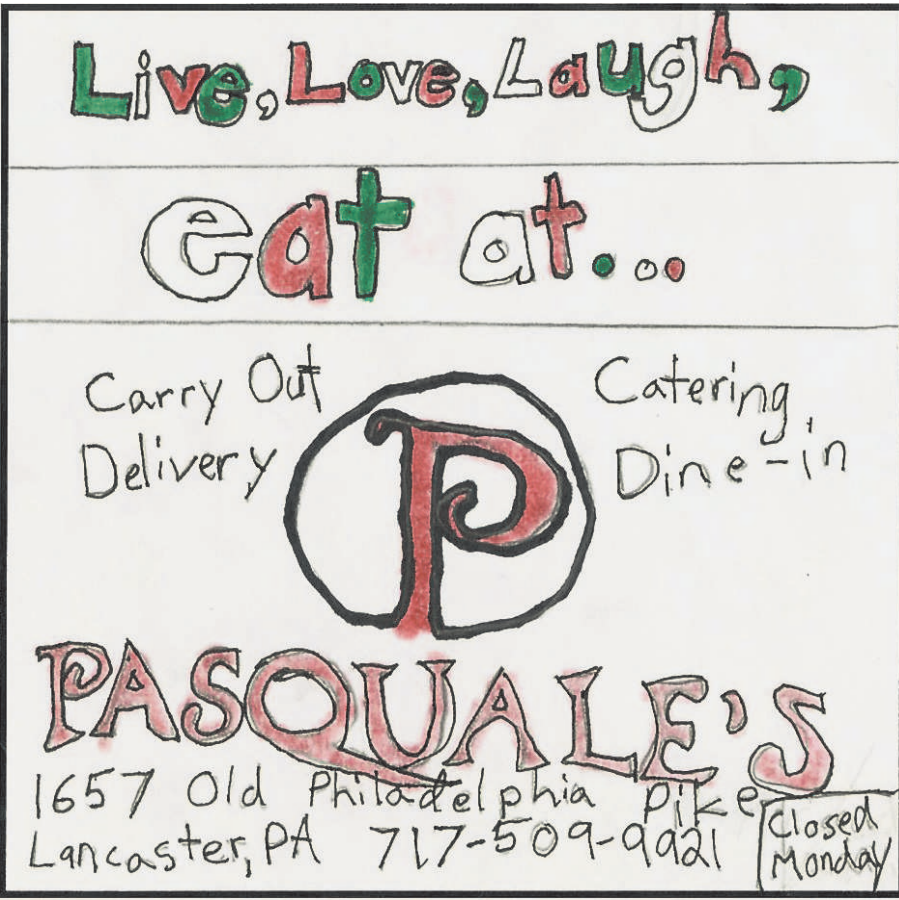 Live, Love, Laugh,
eat at...
Carry Out
Delivery
Catering
Dine-in
P
PASQUALE'S
1657 Old Philadelphia Pike
Lancaster, PA 717-509-9921
Closed
Monday